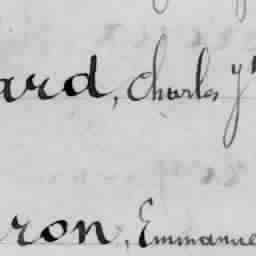 ard, Charles
ron, Emmanue